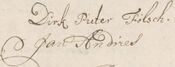 Dirk Pieter Tolsch.
Jan Andries